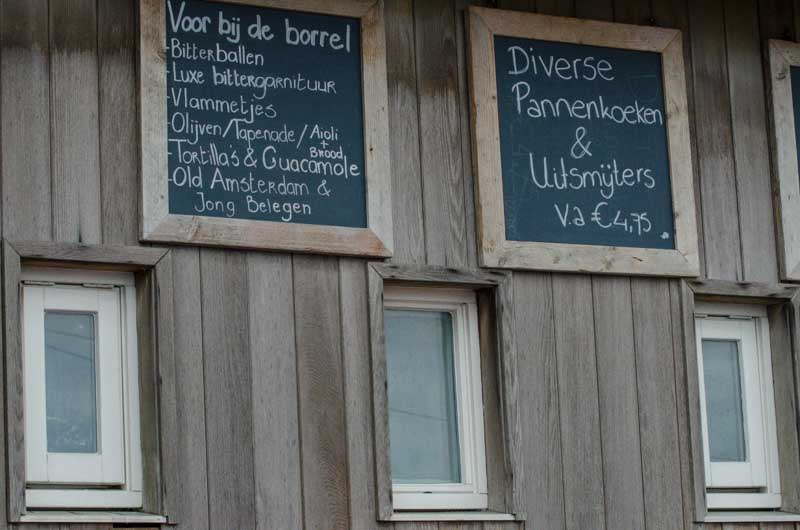 Voor bij de borrel
-Bitterballen
-Luxe bittergarnituur
-Vlammetjes
-Olijven/Tapenade/Aioli + Brood
-Tortilla's & Guacamole
-Old Amsterdam &
Jong Belegen
Diverse
Pannenkoeken
&
Uitsmijters
v.a €4,75